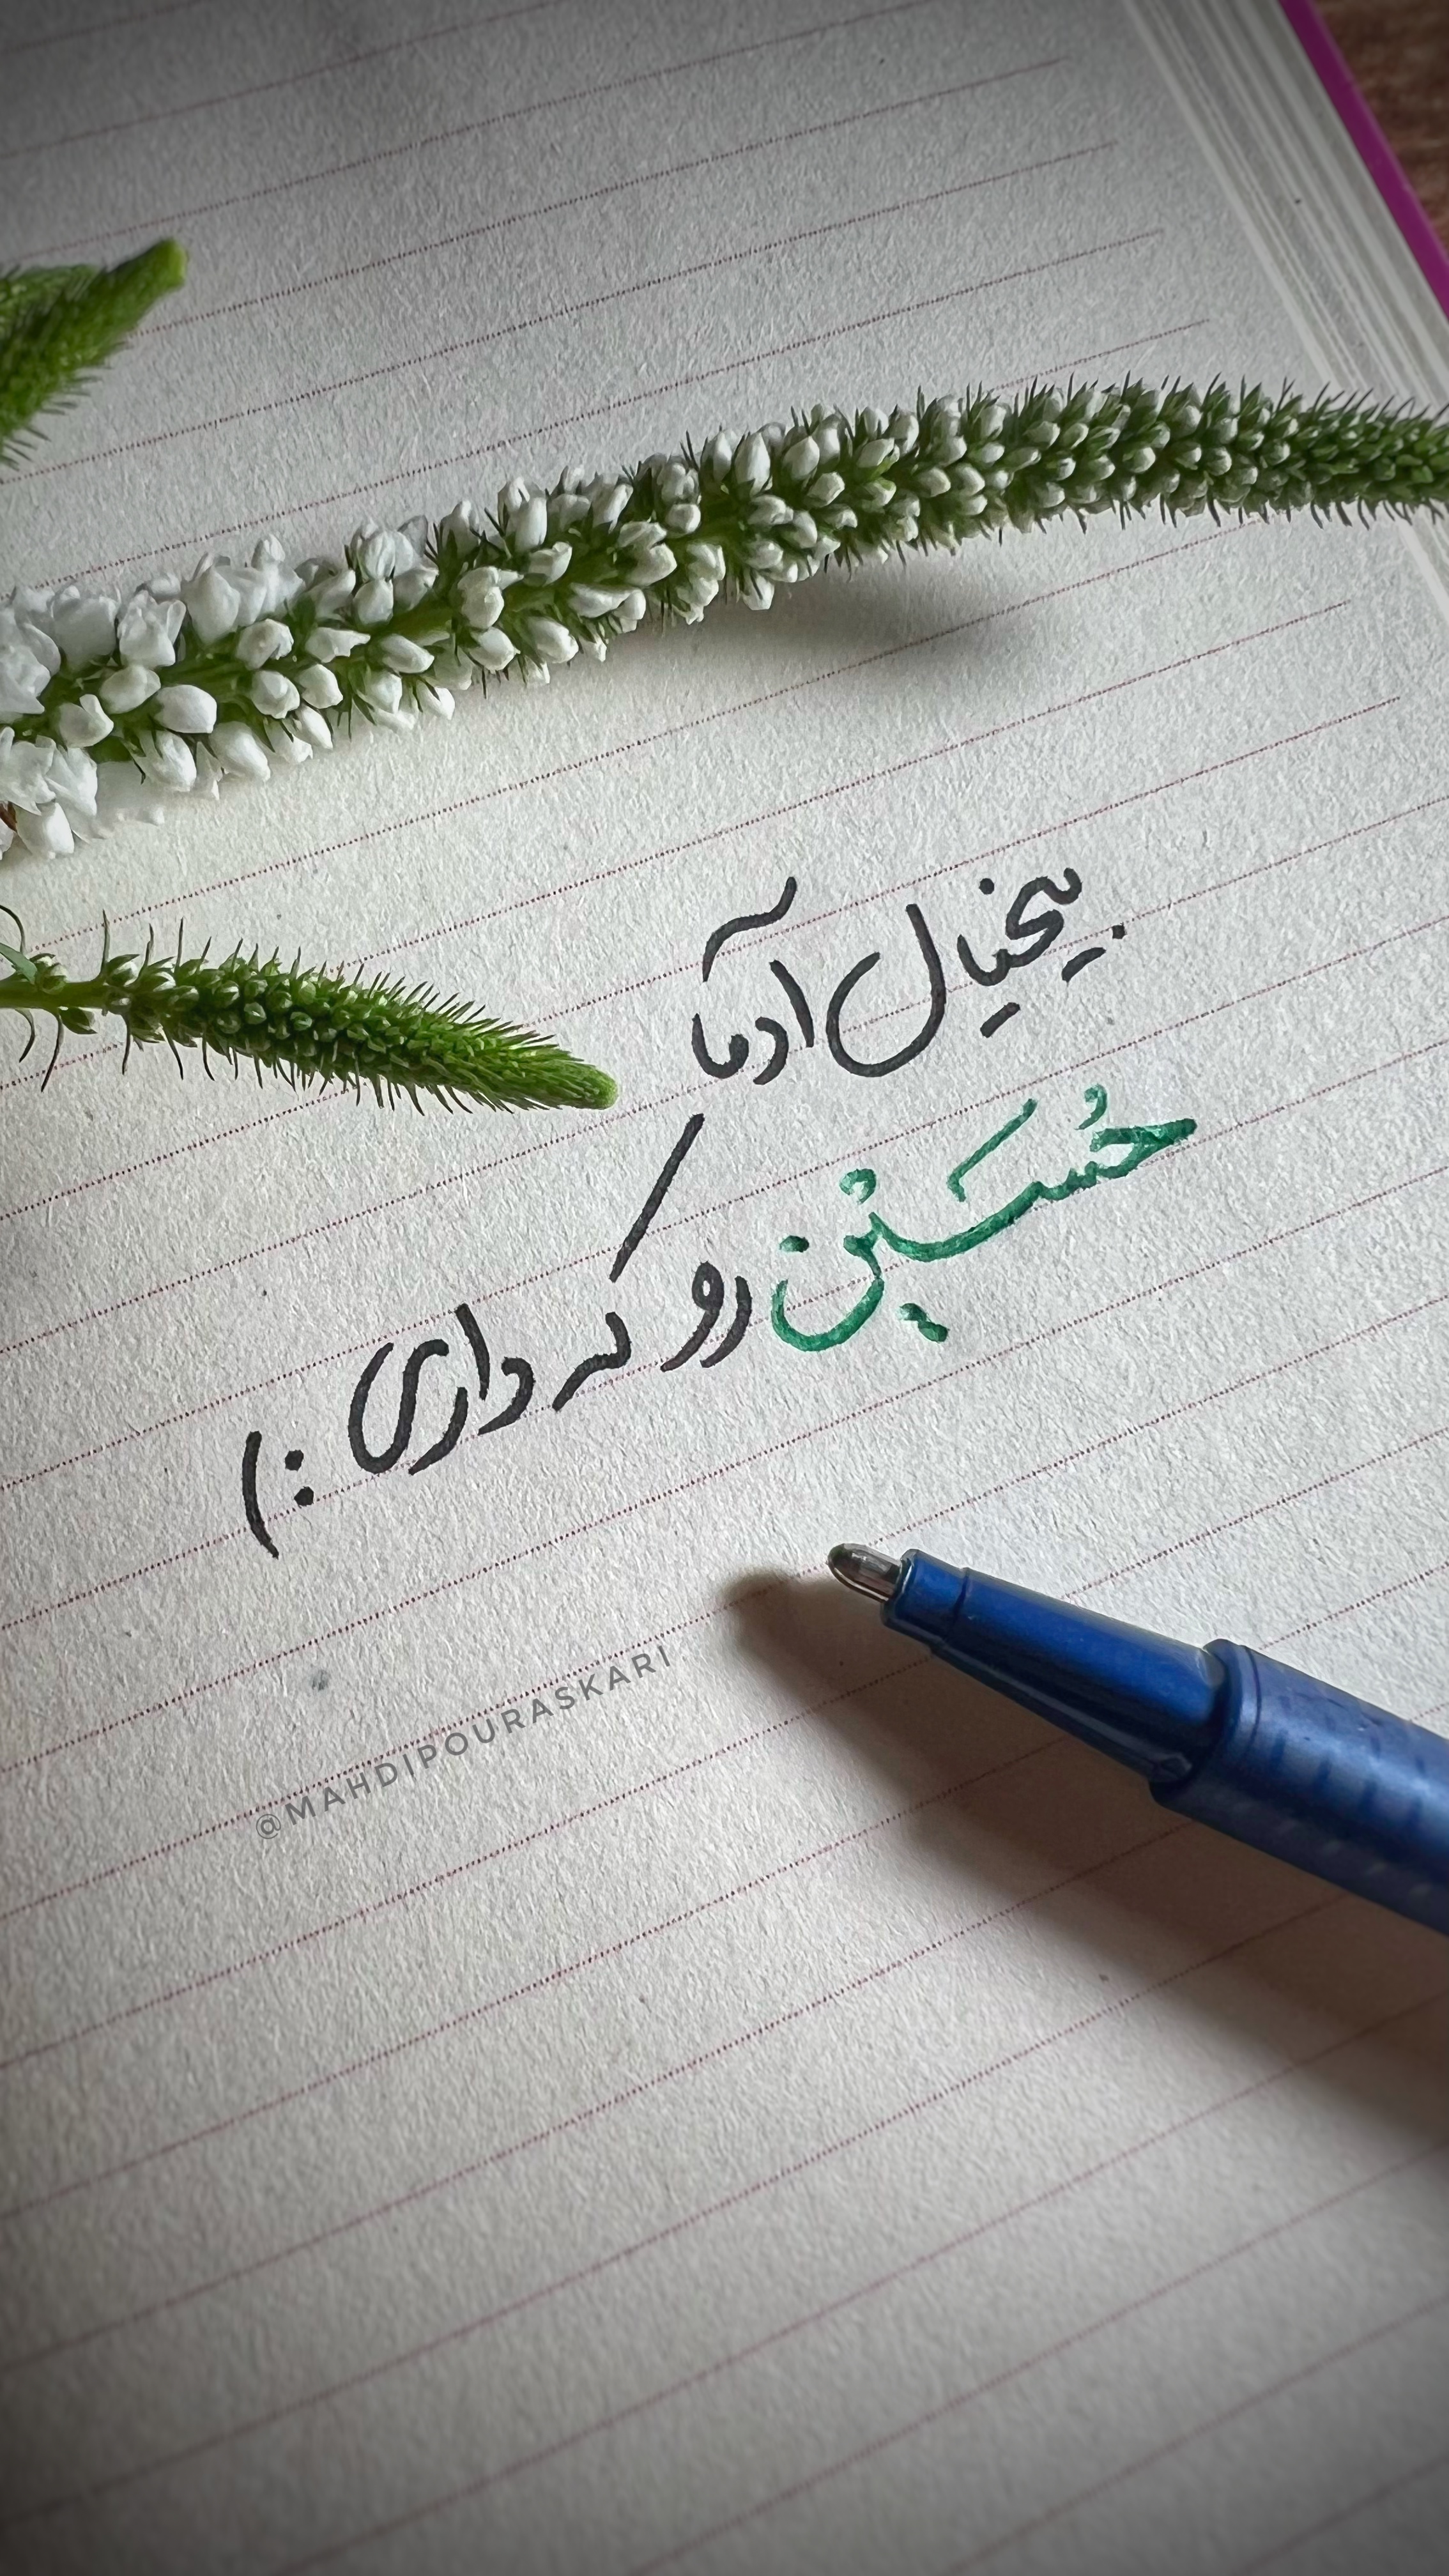 بیخیال آدما
حُسَیْن رو که داری :)
@MAHDIPOURASKARI